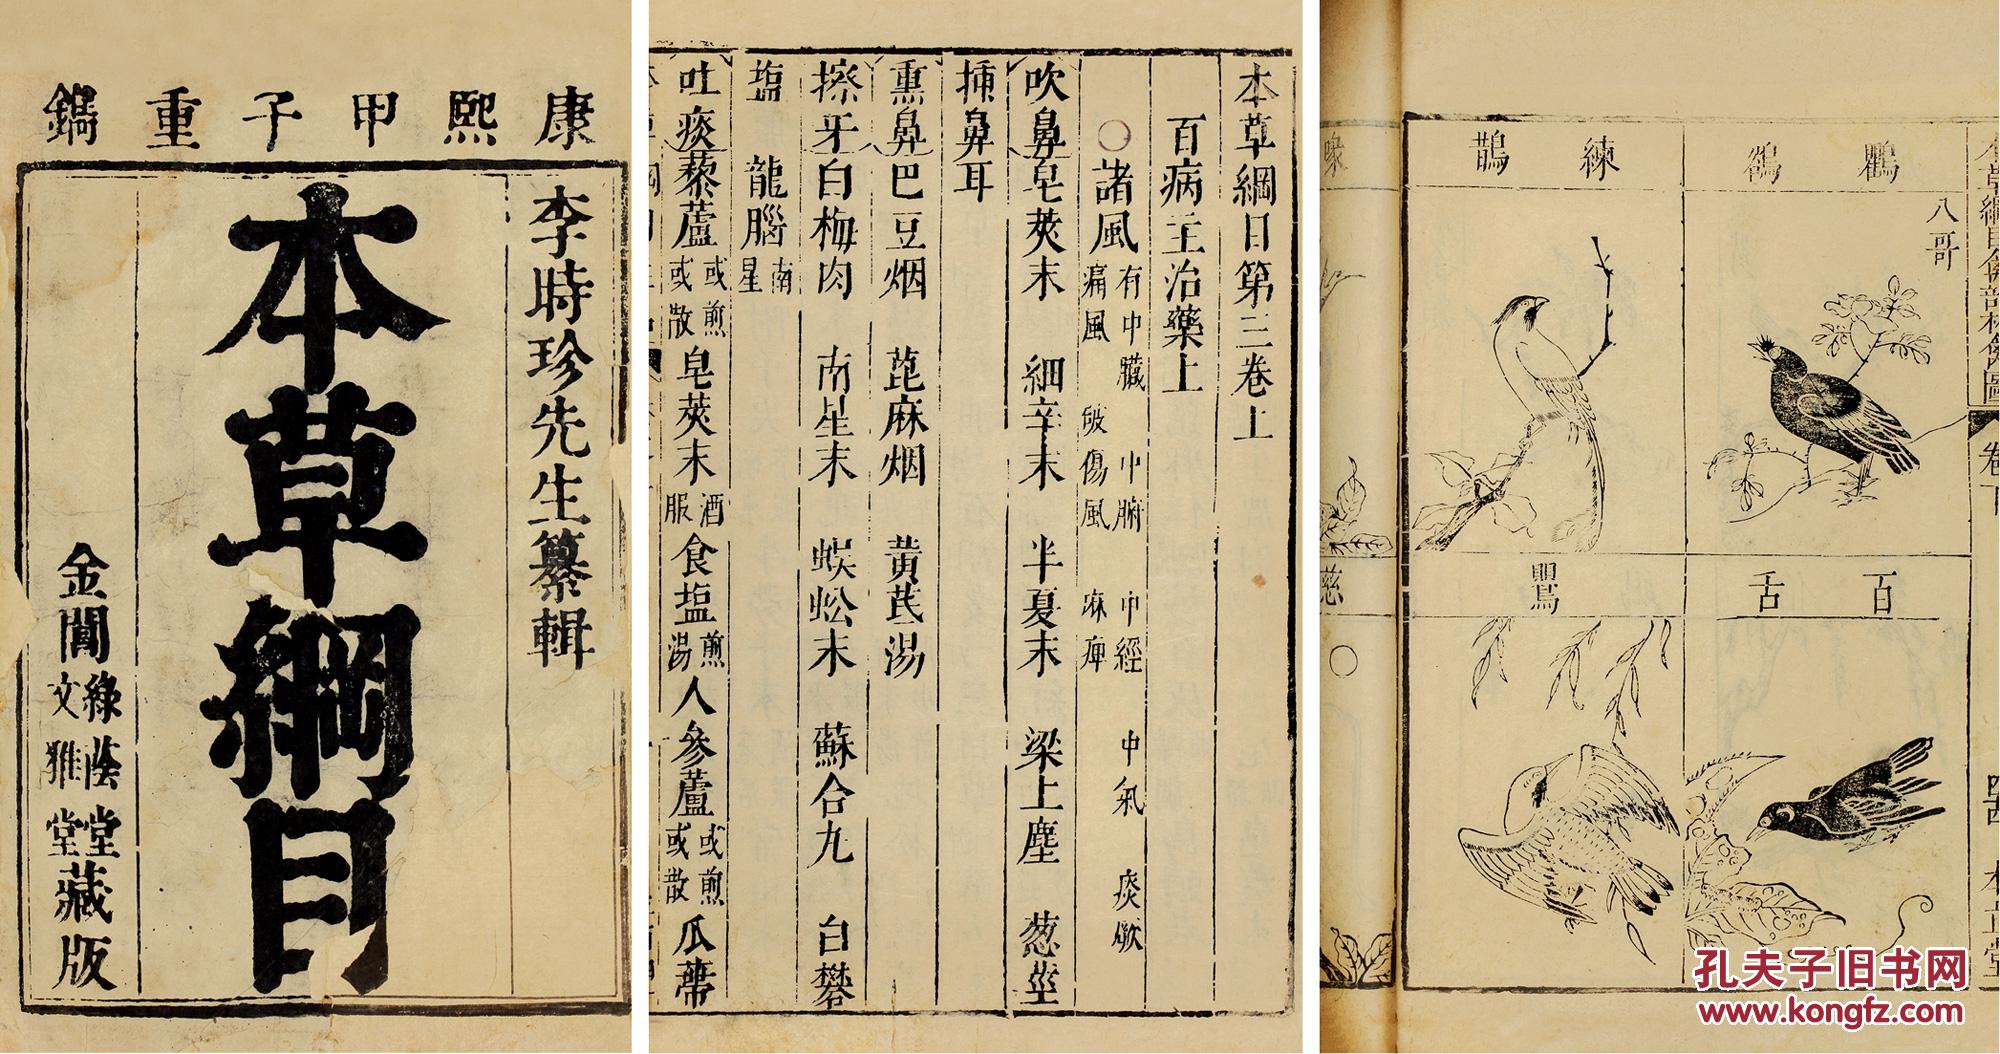 康熙甲子重鐫
李時珍先生纂輯
本草綱目
金閶綠蔭堂文雅堂藏版
本草綱目第三卷上
百病主治藥上
○諸風有中臟 中腑 中經 中氣 痰厥痛風 破傷風 麻痺
吹鼻皂莢末 細辛末 半夏末 梁上塵 葱莖
插鼻耳
熏鼻巴豆烟 蓖麻烟 黄芪湯
擦牙白梅肉 南星末 蜈蚣末 蘇合丸 白礬
塩 龍腦南星
吐痰藜蘆或煎或散皂莢末酒服食塩煎湯人參蘆或煎或散瓜蒂
卷下
本立堂
鸜鵒
八哥
練鵲
百舌
鸎
慈
孔夫子旧书网
www.kongfz.com